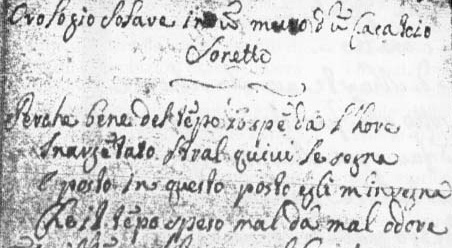 Orologio Solare in ũ muro d'ũ Cacatoio
Sonetto
Perche bene del tẽpo
L'hore
Inargẽtato stral quivi le segna
E posto in questo posto egli m'insegna
Che il tẽpo speso mal dà mal odore